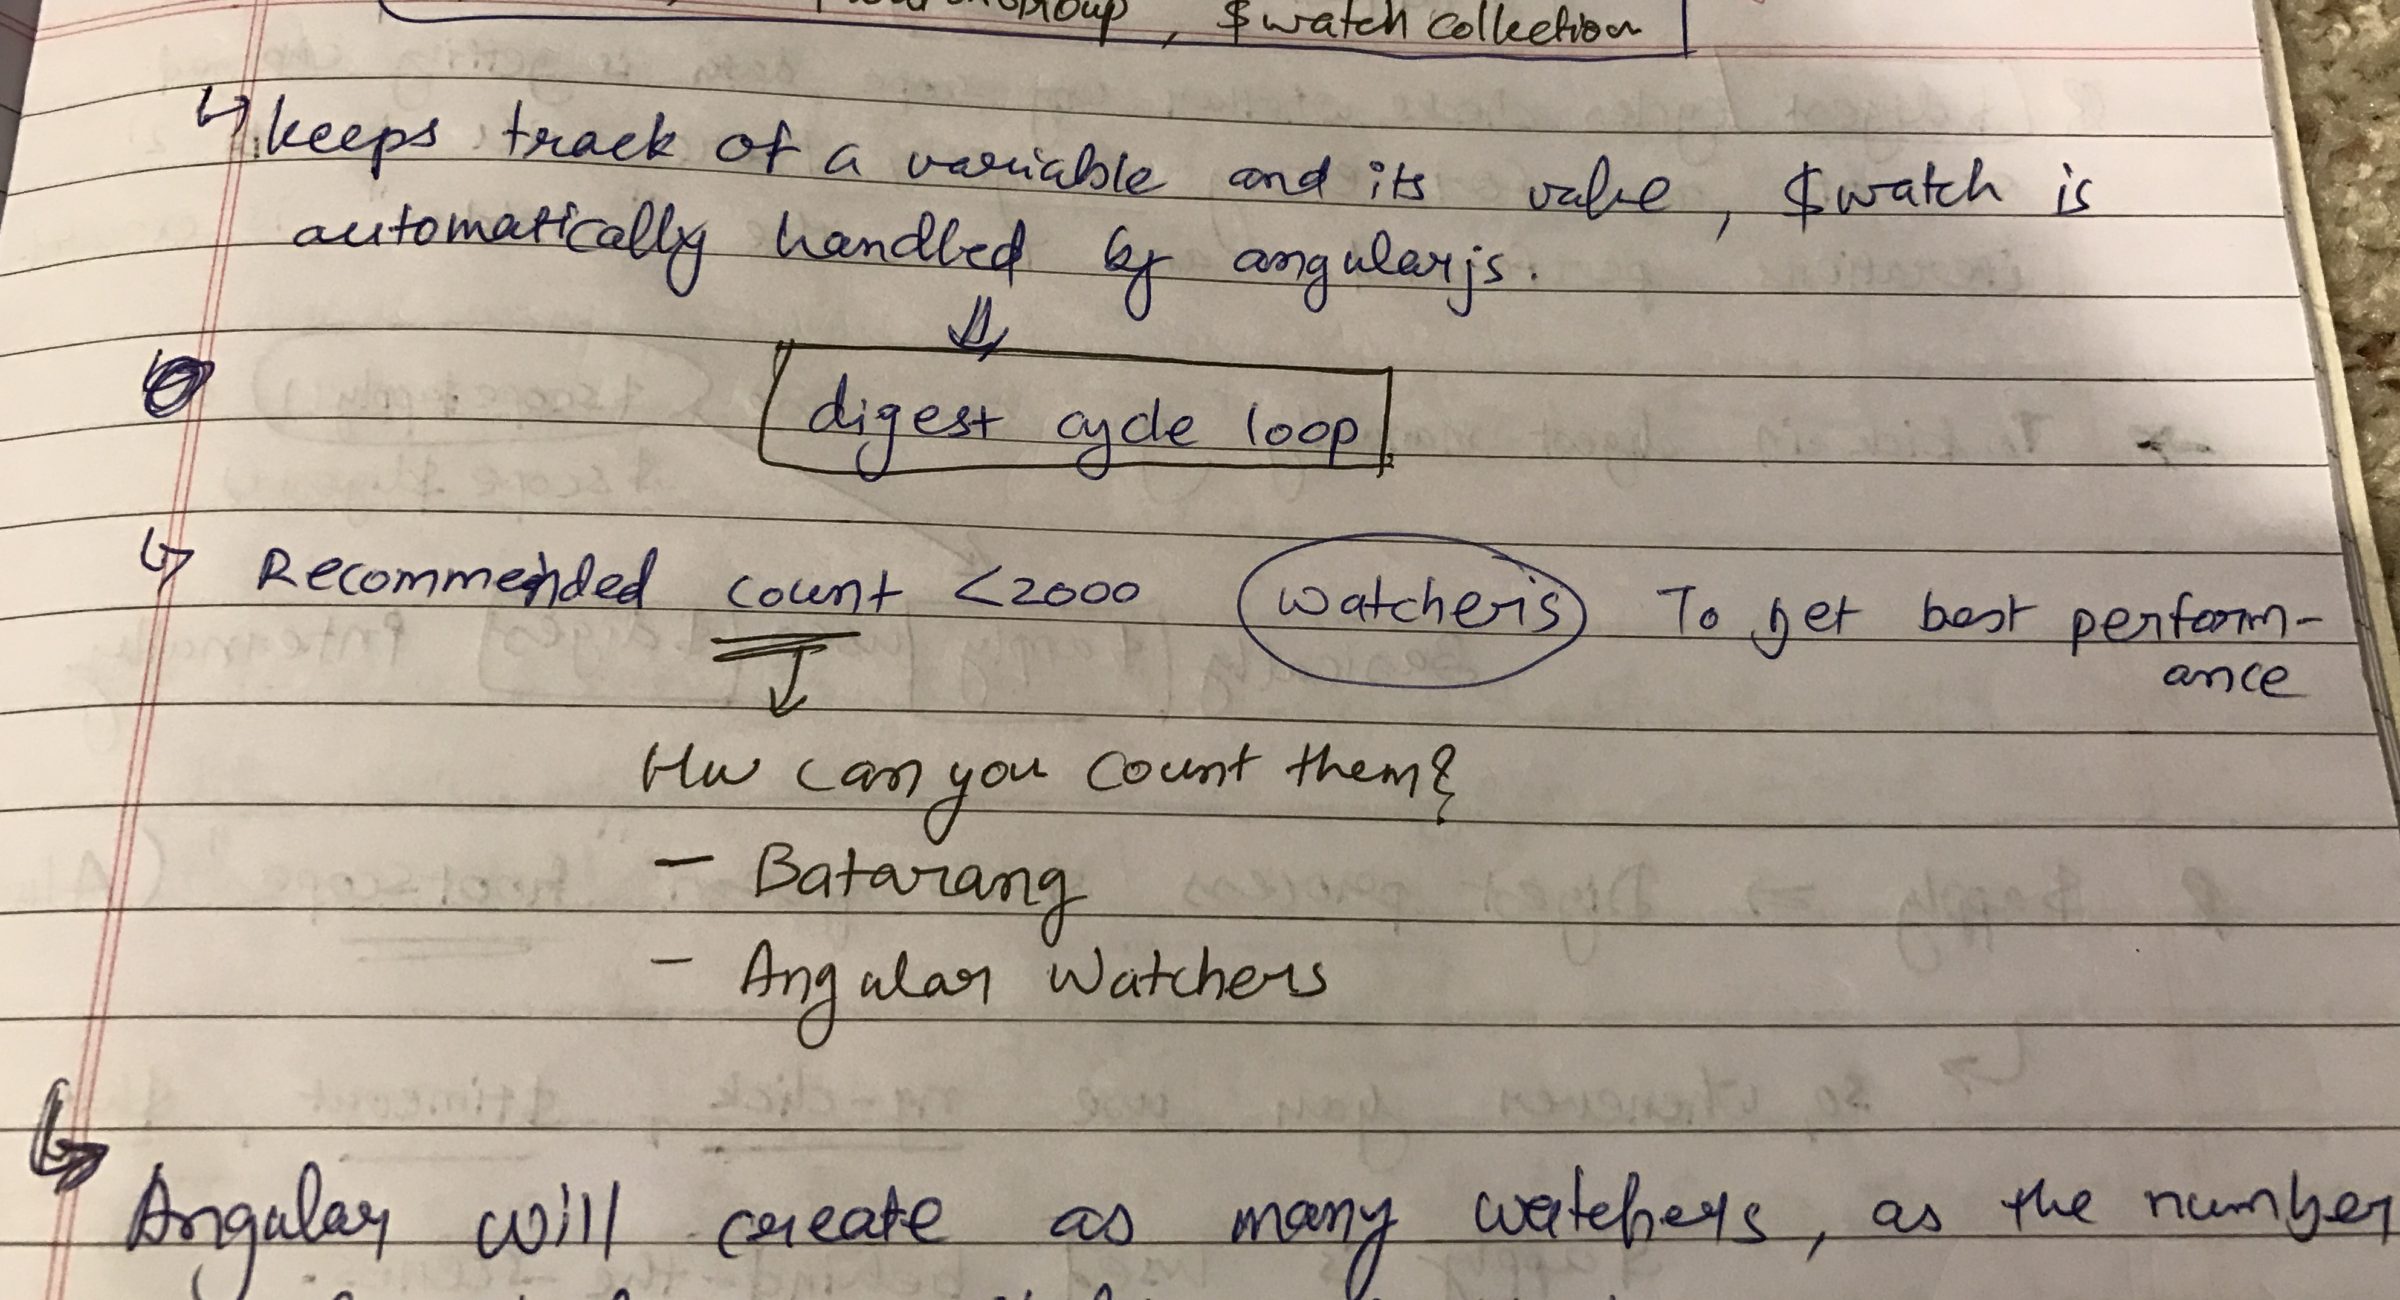 , $watch collection
↳ keeps track of a variable and its value, $watch is
automatically handled by angularjs.
⇓
digest cycle loop
↳ Recommended count <2000 watchers To get best perform-
ance
↓
How can you count them?
- Batarang
- Angular Watchers
↳ Angular will create as many watchers, as the number